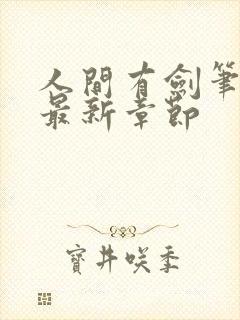 人間有劍筆
最新章節
寶井咲季